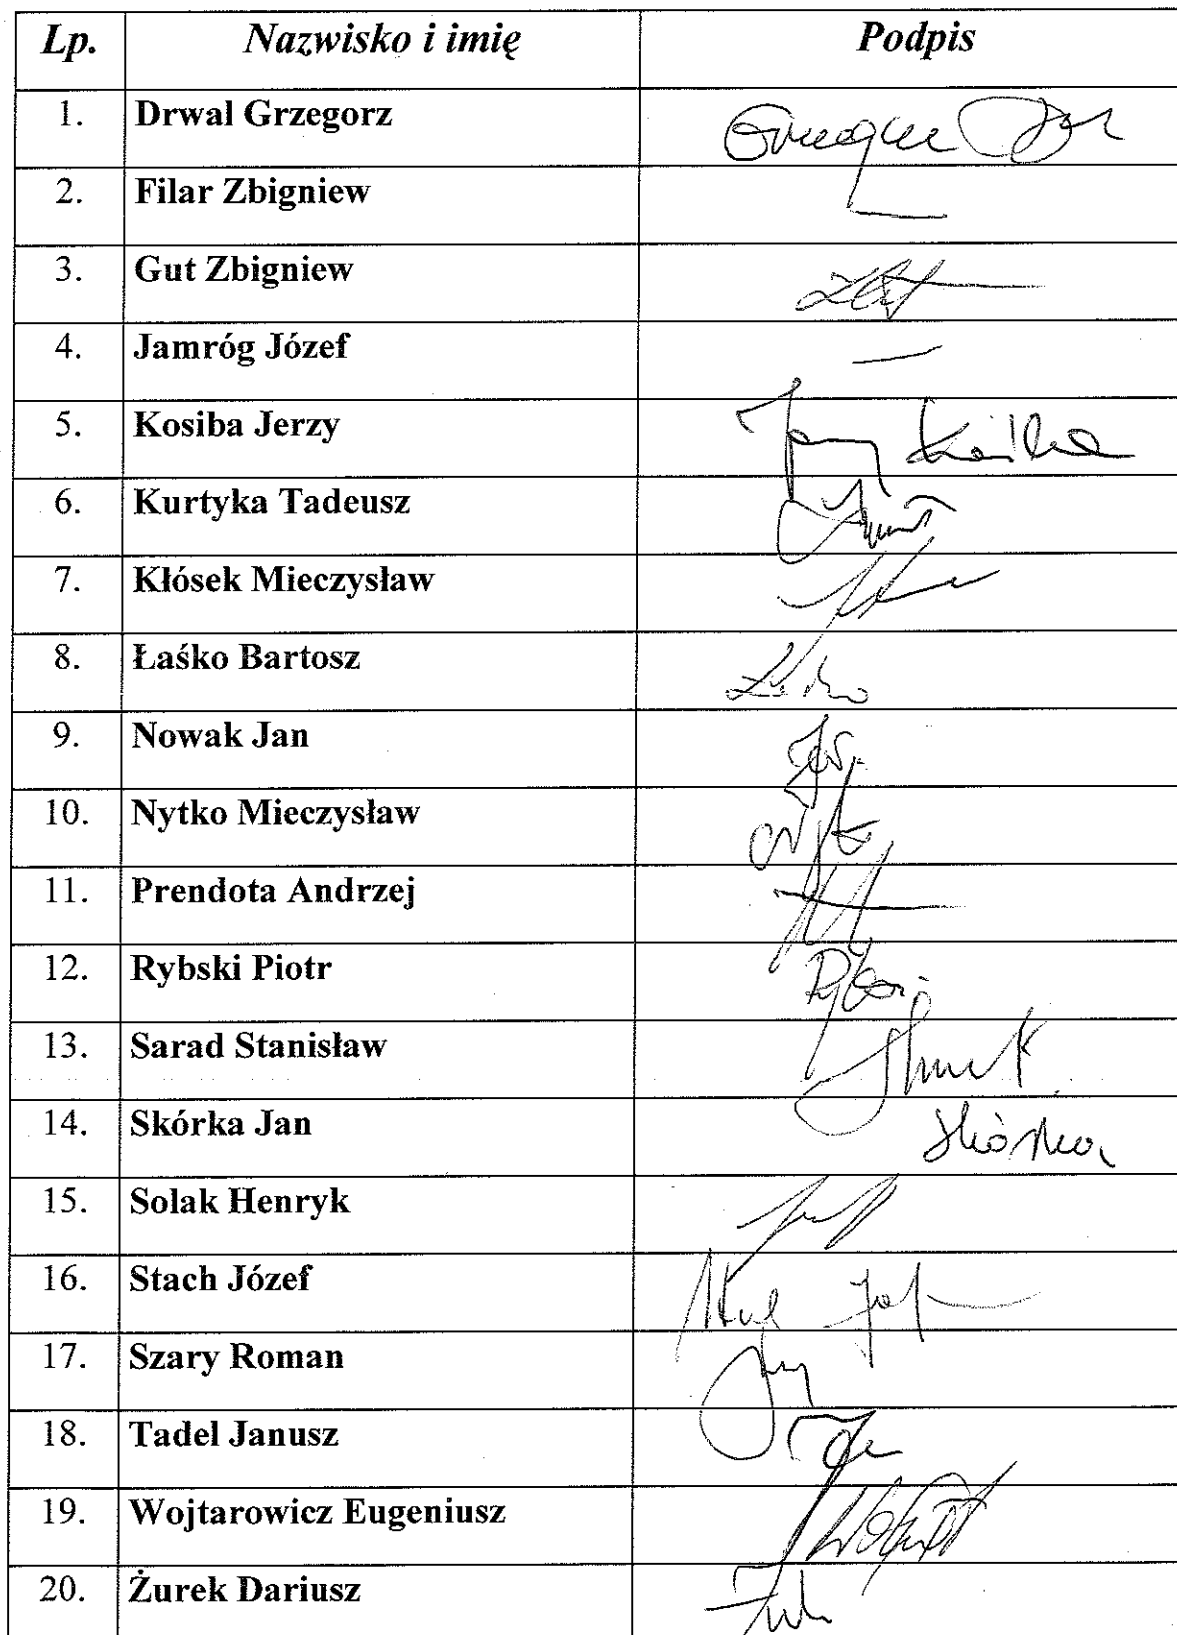 Lp. Nazwisko i imię Podpis
1. Drwal Grzegorz
2. Filar Zbigniew —
3. Gut Zbigniew
4. Jamróg Józef —
5. Kosiba Jerzy Jerzy Kosiba
6. Kurtyka Tadeusz
7. Kłósek Mieczysław
8. Łaśko Bartosz
9. Nowak Jan
10. Nytko Mieczysław
11. Prendota Andrzej
12. Rybski Piotr
13. Sarad Stanisław
14. Skórka Jan Skórka
15. Solak Henryk
16. Stach Józef
17. Szary Roman
18. Tadel Janusz
19. Wojtarowicz Eugeniusz
20. Żurek Dariusz